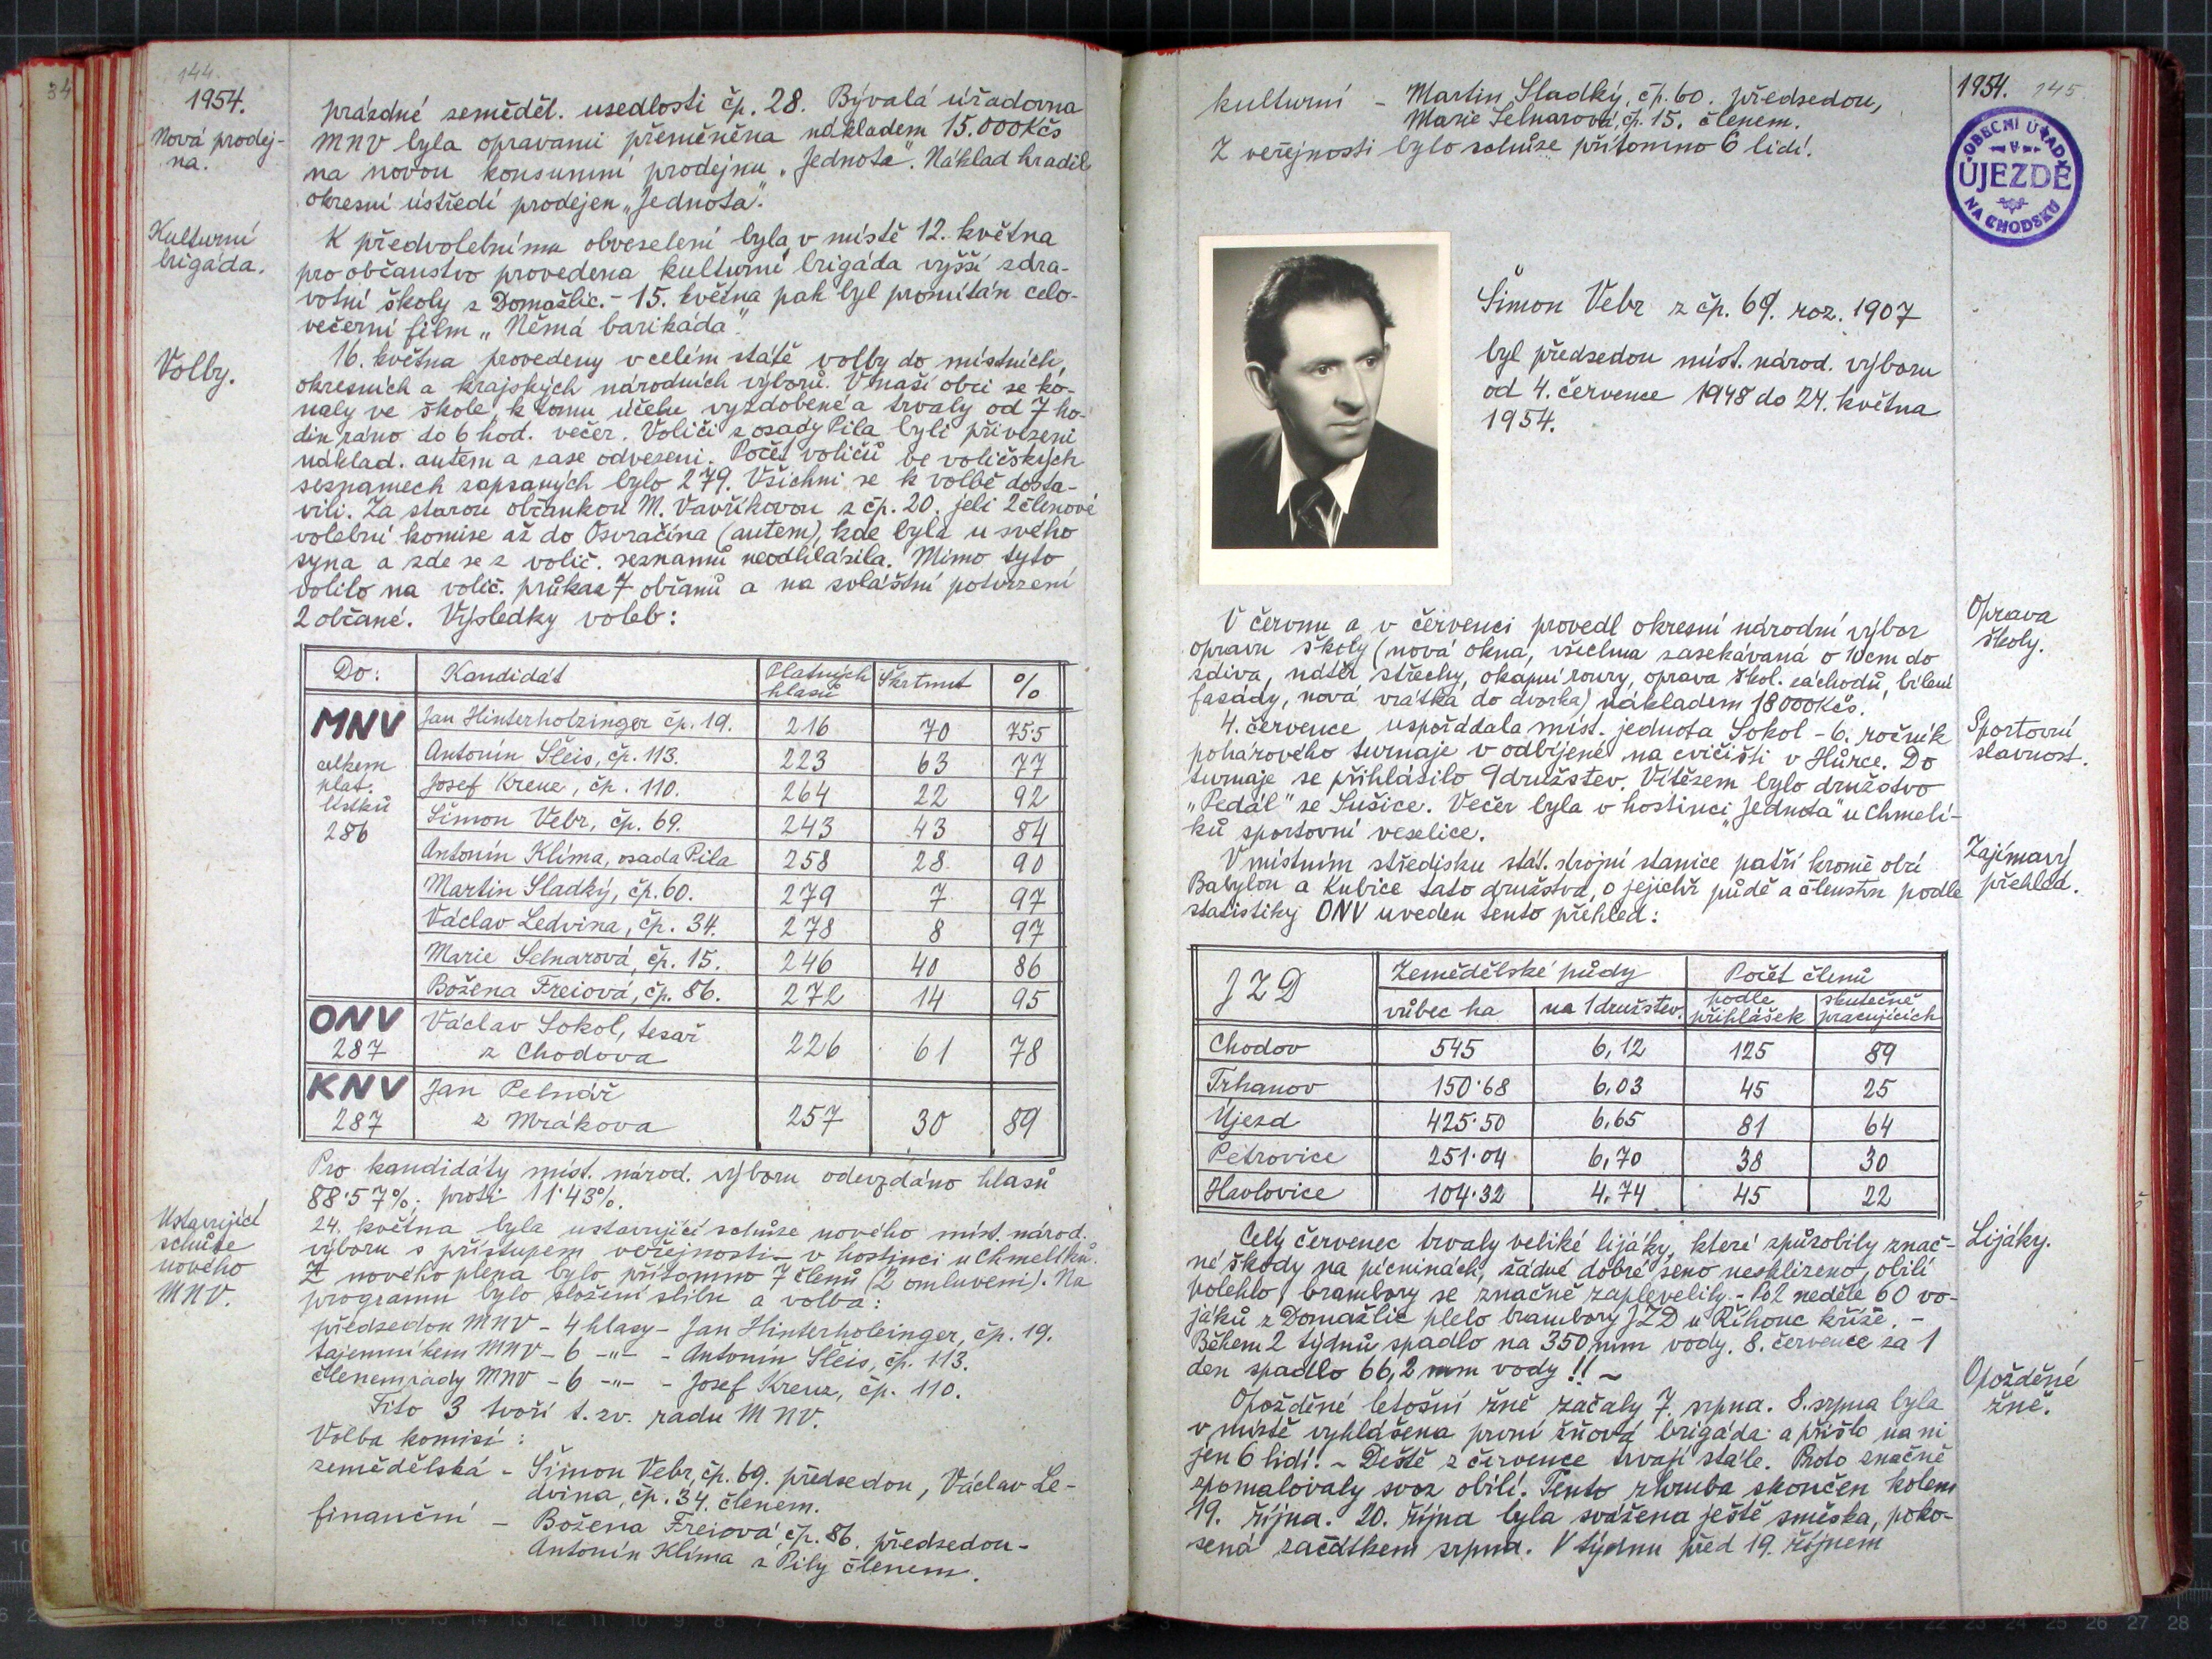 34
144.
1954.
Nová prodej-
na.
prázdné seměděl. usedlosti čp. 28. Bývalá úřadovna
MNV byla opravami přeměněna nákladem 15.000Kčs
na novou konsumní prodejnu „Jednota“. Náklad hradil
okresní ústředí prodejen „Jednota“.
Kulturní
brigáda.
K předvolebnímu obveselení byla v místě 12. května
pro občanstvo provedena kulturní brigáda vyšší zdra-
votní školy z Domažlic. - 15. května pak byl promítán celo-
večerní film „Němá barikáda“.
Volby.
16. května provedeny v celém státě volby do místních,
okresních a krajských národních výborů. V naší obci se ko-
naly ve škole, k tomu účelu vyzdobené a trvaly od 7 ho-
din ráno do 6 hod. večer. Voliči z osady Pila byli přivezeni
náklad. autem a zase odvezeni. Počet voličů ve voličských
seznamech zapsaných bylo 279. Všichni se k volbě dosta-
vili. Za starou občankou M. Vavříkovou z čp. 20. jeli 2 členové
volební komise až do Osvračína (autem), kde byla u svého
syna a zde se z volič. seznamů neodhlásila. Mimo tyto
volilo na volič. průkaz 7 občanů a na zvláštní potvrzení
2 občané. Výsledky voleb:
Do: Kandidát Platných hlasů Škrtnut %
MNV Jan Hinterholzinger čp. 19. 216 70 75·5
celkem Antonín Šleis, čp. 113. 223 63 77
plat. Josef Kreuz, čp. 110. 264 22 92
lístků Šimon Vebr, čp. 69. 243 43 84
286 Antonín Klíma, osada Pila 258 28 90
Martin Sladký, čp. 60. 279 7 97
Václav Ledvina, čp. 34. 278 8 97
Marie Selnarová, čp. 15. 246 40 86
Božena Freiová, čp. 86. 272 14 95
ONV Václav Sokol, tesař
287 z Chodova 226 61 78
KNV Jan Pelnář
287 z Mrákova 257 30 89
Pro kandidáty míst. národ. výboru odevzdáno hlasů
88·57%; proti 11·43%.
Ustavující
schůze
nového
MNV.
24. května byla ustavující schůze nového míst. národ.
výboru s přístupem veřejnosti - v hostinci u Chmelíků.
Z nového plena bylo přítomno 7 členů (2 omluveni). Na
programu bylo složení slibu a volba:
předsedou MNV - 4 hlasy - Jan Hinterholzinger, čp. 19.
tajemníkem MNV - 6 -"- - Antonín Šleis, čp. 113.
členem rady MNV - 6 -"- - Josef Kreuz, čp. 110.
Tito 3 tvoří t. zv. radu MNV.
Volba komisí:
zemědělská - Šimon Vebr, čp. 69. předsedou, Václav Le-
dvina, čp. 34. členem.
finanční - Božena Freiová, čp. 86. předsedou -
Antonín Klíma z Pily členem.
1954. 145
kulturní - Martin Sladký, čp. 60. předsedou,
Marie Selnarová, čp. 15. členem.
Z veřejnosti bylo schůze přítomno 6 lidí.
OBECNÍ ÚŘAD
ÚJEZDĚ
NA CHODSKU
Šimon Vebr z čp. 69. roz. 1907
byl předsedou míst. národ. výboru
od 4. července 1948 do 24. května
1954.
Oprava
školy.
V červnu a v červenci provedl okresní národní výbor
opravu školy (nová okna, všechna zasekávaná o 10cm do
zdiva, nátěr střechy, okapní roury, oprava škol. záchodů, bílení
fasády, nová vrátka do dvorka) nákladem 18000Kčs.
Sportovní
slavnost.
4. července uspořádala míst. jednota Sokol - 6. ročník
pohárového turnaje v odbíjené na cvičišti v Hůrce. Do
turnaje se přihlásilo 9 družstev. Vítězem bylo družstvo
„Pedál“ se Sušice. Večer byla v hostinci „Jednota“ u Chmelí-
ků sportovní veselice.
Zajímavý
přehled.
V místním středisku stát. strojní stanice patří kromě obcí
Babylon a Kubice tato družstva, o jejichž půdě a členstvu podle
statistiky ONV uveden tento přehled:
JZD Zemědělské půdy Počet členů
vůbec ha na 1 družstev. podle přihlášek skutečně pracujících
Chodov 545 6,12 125 89
Trhanov 150·68 6,03 45 25
Újezd 425·50 6,65 81 64
Petrovice 251·04 6,70 38 30
Havlovice 104·32 4,74 45 22
Lijáky.
Celý červenec trvaly veliké lijáky, které způsobily znač-
né škody na pícninách, žádné dobré seno nesklizeno, obilí
polehlo, brambory se značně zaplevelily. - Po 2 neděle 60 vo-
jáků z Domažlic plelo brambory JZD u Říhovc kříže. -
Během 2 týdnů spadlo na 350 mm vody. 8. července za 1
den spadlo 66,2 mm vody !! ~
Opožděné
žně.
Opožděné letošní žně začaly 7. srpna. 8. srpna byla
v místě vyhlášena první žňová brigáda a přišlo na ni
jen 6 lidí! ~ Deště z července trvají stále. Proto značně
zpomalovaly svoz obilí. Tento zhruba skončen kolem
19. října. 20. října byla svážena ještě směska, poko-
sená začátkem srpna. V týdnu před 19. říjnem